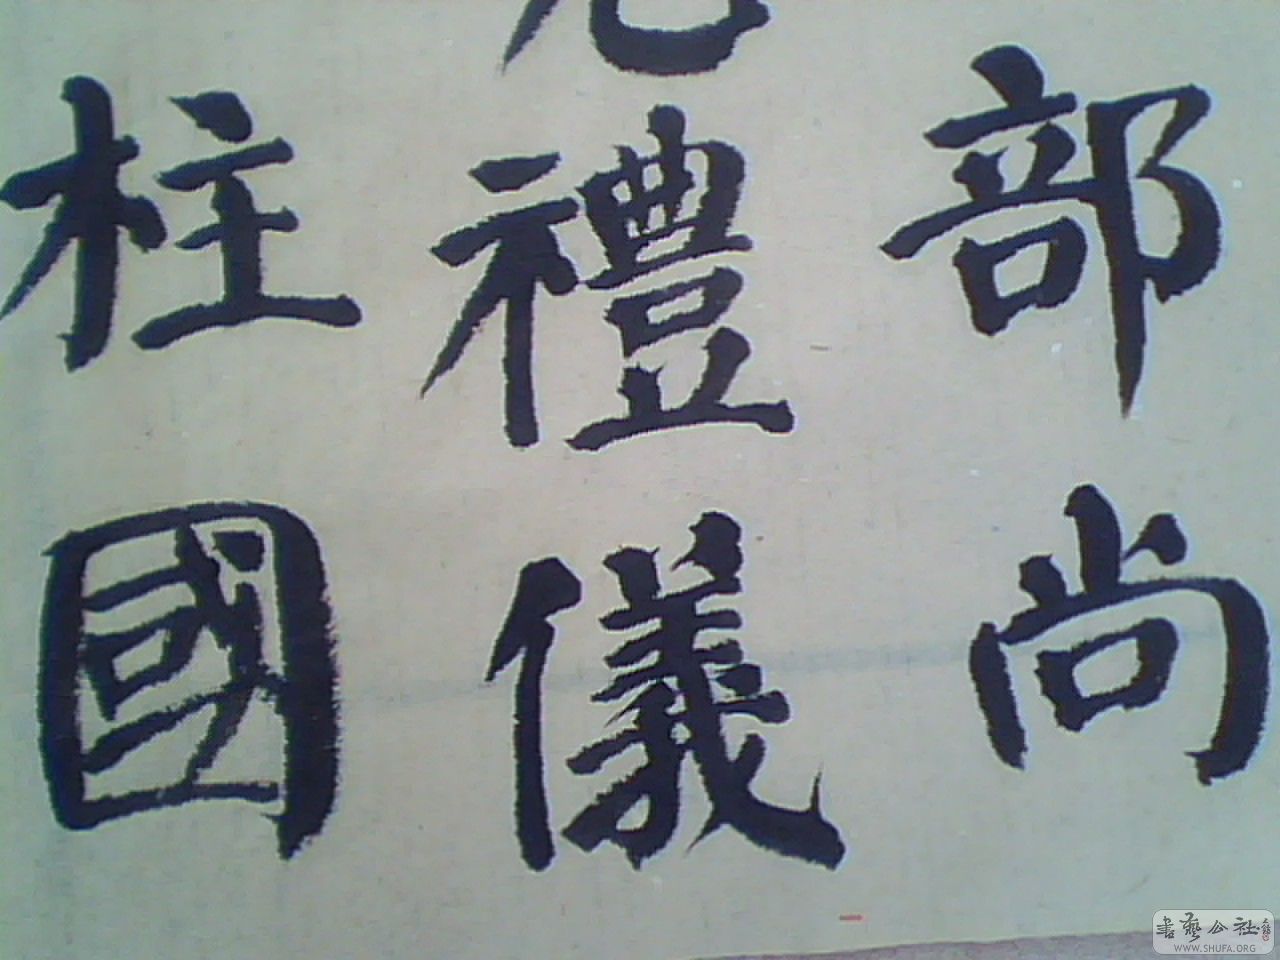 部尚
禮儀
柱國
書藝公社
WWW.SHUFA.ORG